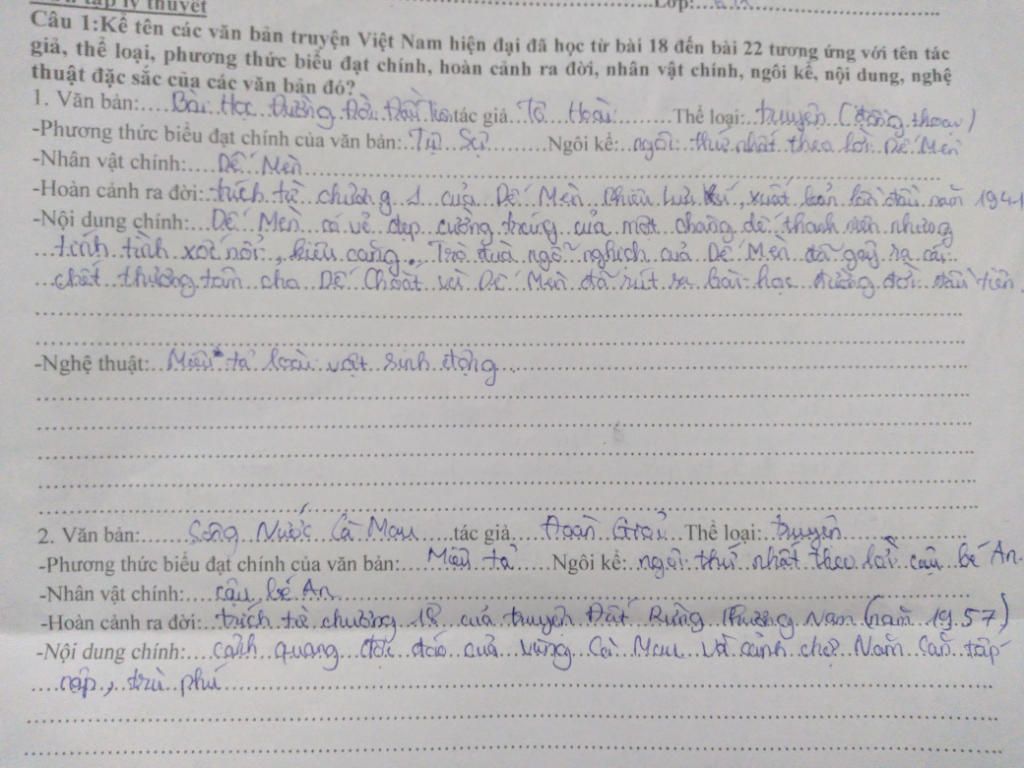 tập lý thuyết
Lớp:
Câu 1:Kể tên các văn bản truyện Việt Nam hiện đại đã học từ bài 18 đến bài 22 tương ứng với tên tác
giả, thể loại, phương thức biểu đạt chính, hoàn cảnh ra đời, nhân vật chính, ngôi kể, nội dung, nghệ
thuật đặc sắc của các văn bản đó?
1. Văn bản:....Bài Học Đường Đời Đầu Tiên tác giả..Tô Hoài.........Thể loại:..truyện (đồng thoại)
-Phương thức biểu đạt chính của văn bản:..Tự Sự..........Ngôi kể:..ngôi thứ nhất theo lời Dế Mèn
-Nhân vật chính:....Dế Mèn
-Hoàn cảnh ra đời:..trích từ chương 1 của Dế Mèn Phiêu Lưu Kí, xuất bản lần đầu năm 1941
-Nội dung chính:...Dế Mèn có vẻ đẹp cường tráng của một chàng dế thanh niên nhưng
tính tình xốc nổi, kiêu căng. Trò đùa ngỗ nghịch của Dế Mèn đã gây ra cái
chết thương tâm cho Dế Choắt và Dế Mèn đã rút ra bài học đường đời đầu tiên.
-Nghệ thuật:...Miêu tả loài vật sinh động
2. Văn bản:.......Sông Nước Cà Mau......tác giả....Đoàn Giỏi...Thể loại:..truyện
-Phương thức biểu đạt chính của văn bản:....Miêu tả......Ngôi kể:..ngôi thứ nhất theo lời cậu bé An.
-Nhân vật chính:....cậu bé An
-Hoàn cảnh ra đời:..trích từ chương 18 của truyện Đất Rừng Phương Nam (năm 1957)
-Nội dung chính:....cảnh quang độc đáo của vùng Cà Mau và cảnh chợ Năm Căn tấp
nập, trù phú